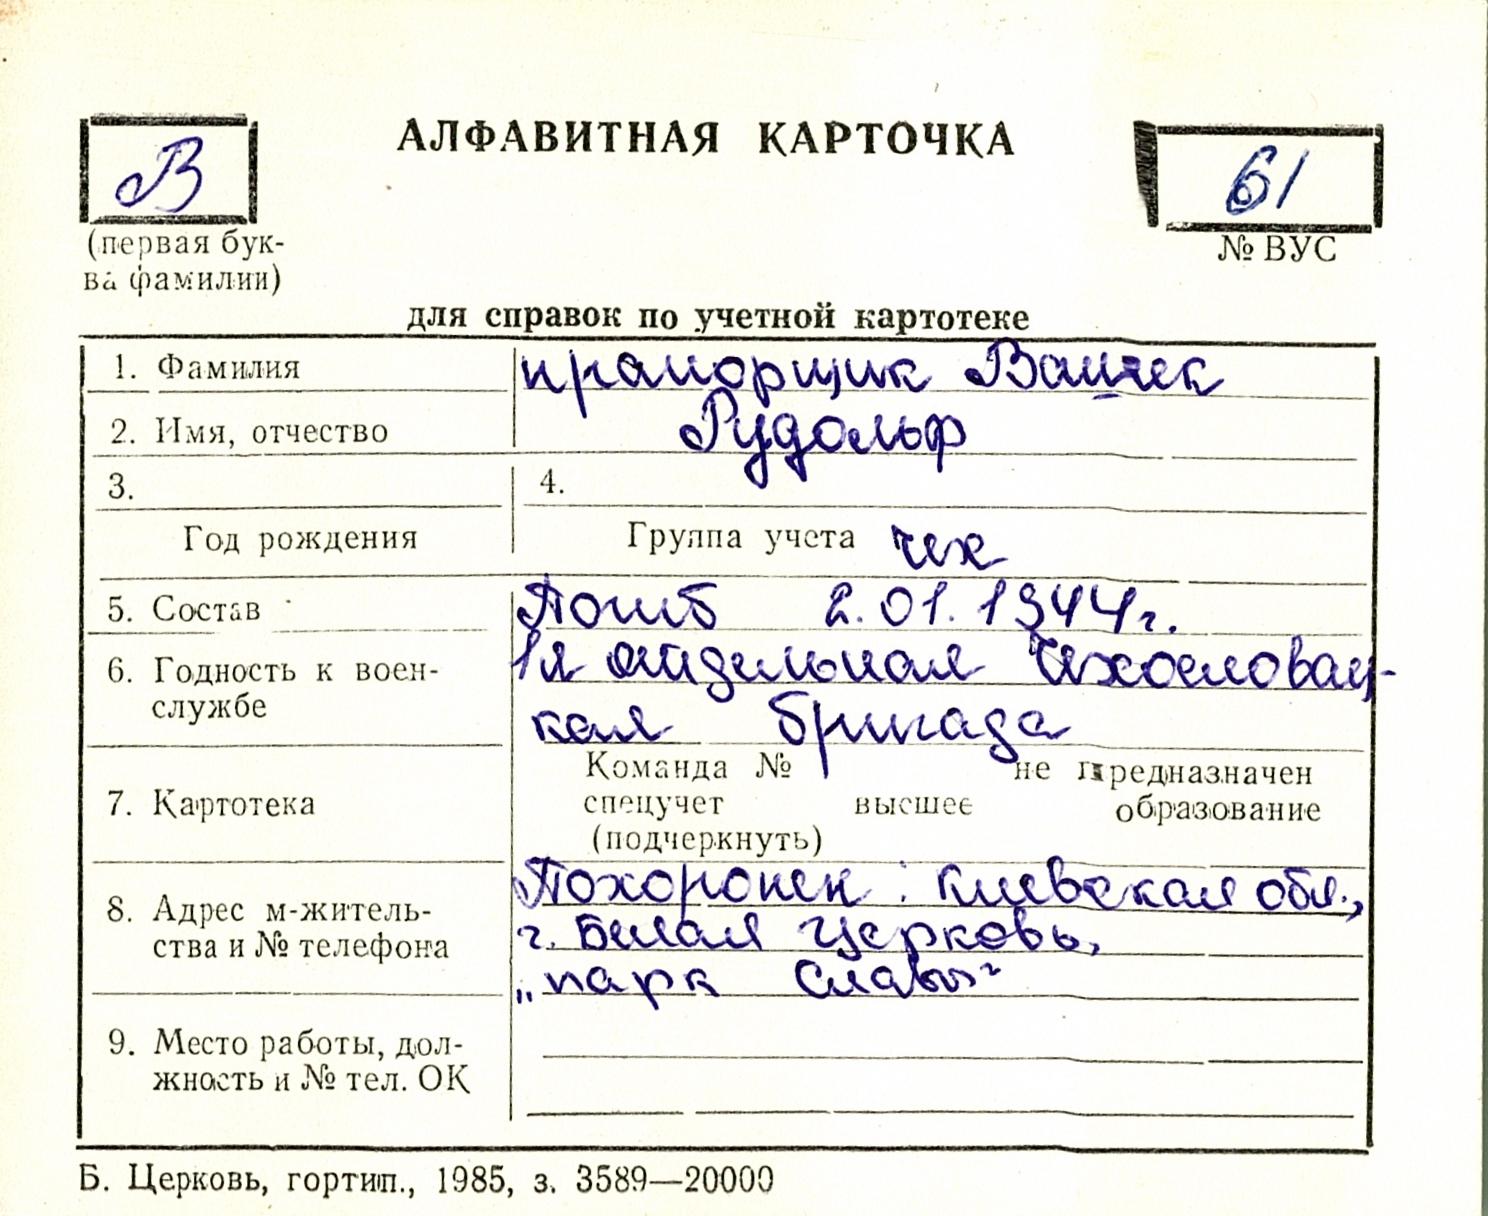 В
АЛФАВИТНАЯ КАРТОЧКА
61
(первая бук-
ва фамилии)
№ ВУС
для справок по учетной картотеке
1. Фамилия
прапорщик
2. Имя, отчество
Рудольф
3.
4.
Год рождения
Группа учета чех
5. Состав
Погиб 2.01.1944г.
6. Годность к воен-
службе
1я отдельная Чехословац-
кая бригада
7. Картотека
Команда № не предназначен
спецучет высшее образование
(подчеркнуть)
8. Адрес м-житель-
ства и № телефона
Похоронен: Киевская обл.,
г. Белая Церковь,
„парк Славы"
9. Место работы, дол-
жность и № тел. ОК
Б. Церковь, гортип., 1985, з. 3589—20000